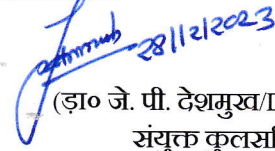 28/12/2023
(ड़ा० जे. पी. देशमुख/
संयुक्त कुलसि